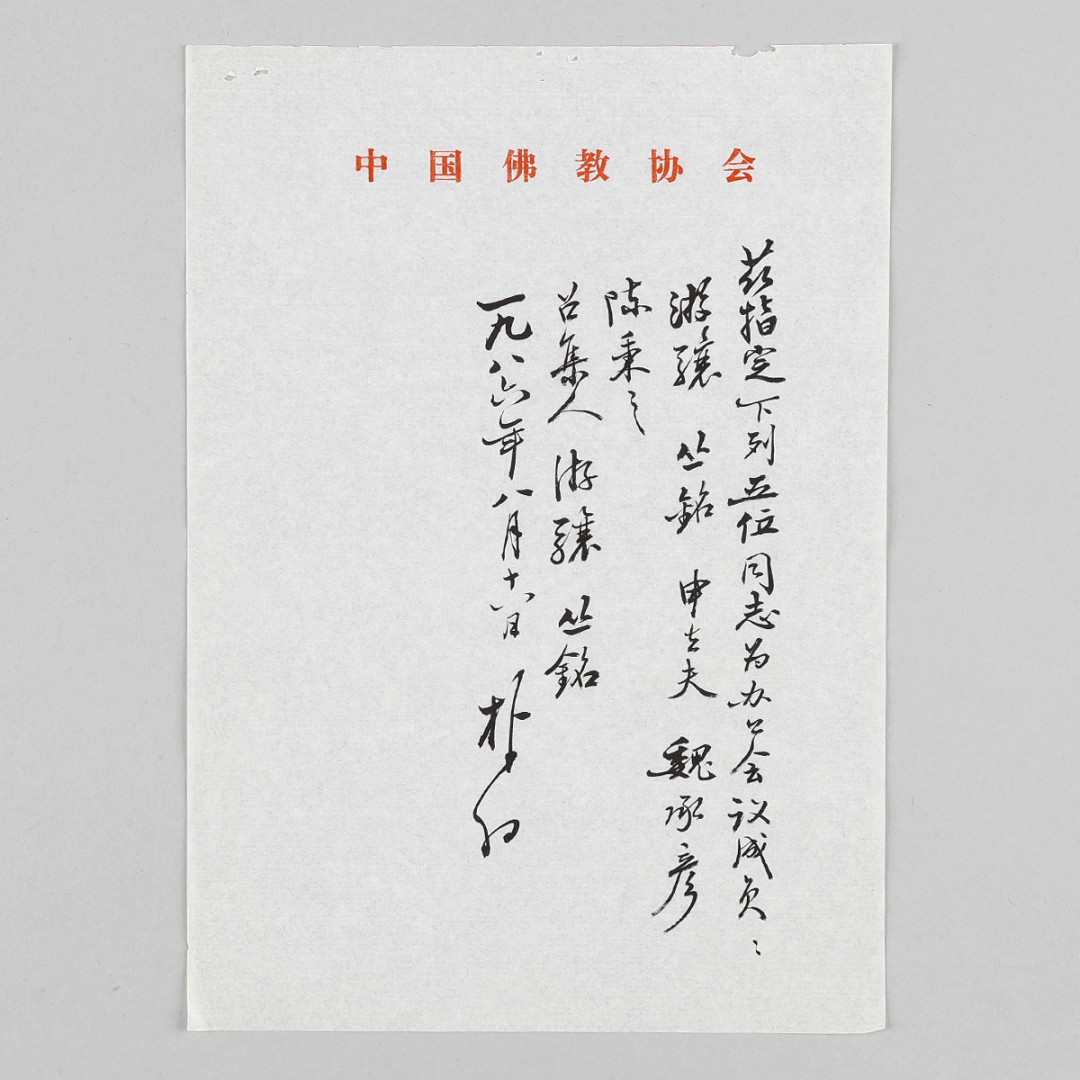 中国佛教协会
兹指定下列五位同志为办公会议成员:
游骧 丛铭 申立夫 魏承彦
陈秉之
召集人 游骧 丛铭
一九八六年八月十六日 朴初